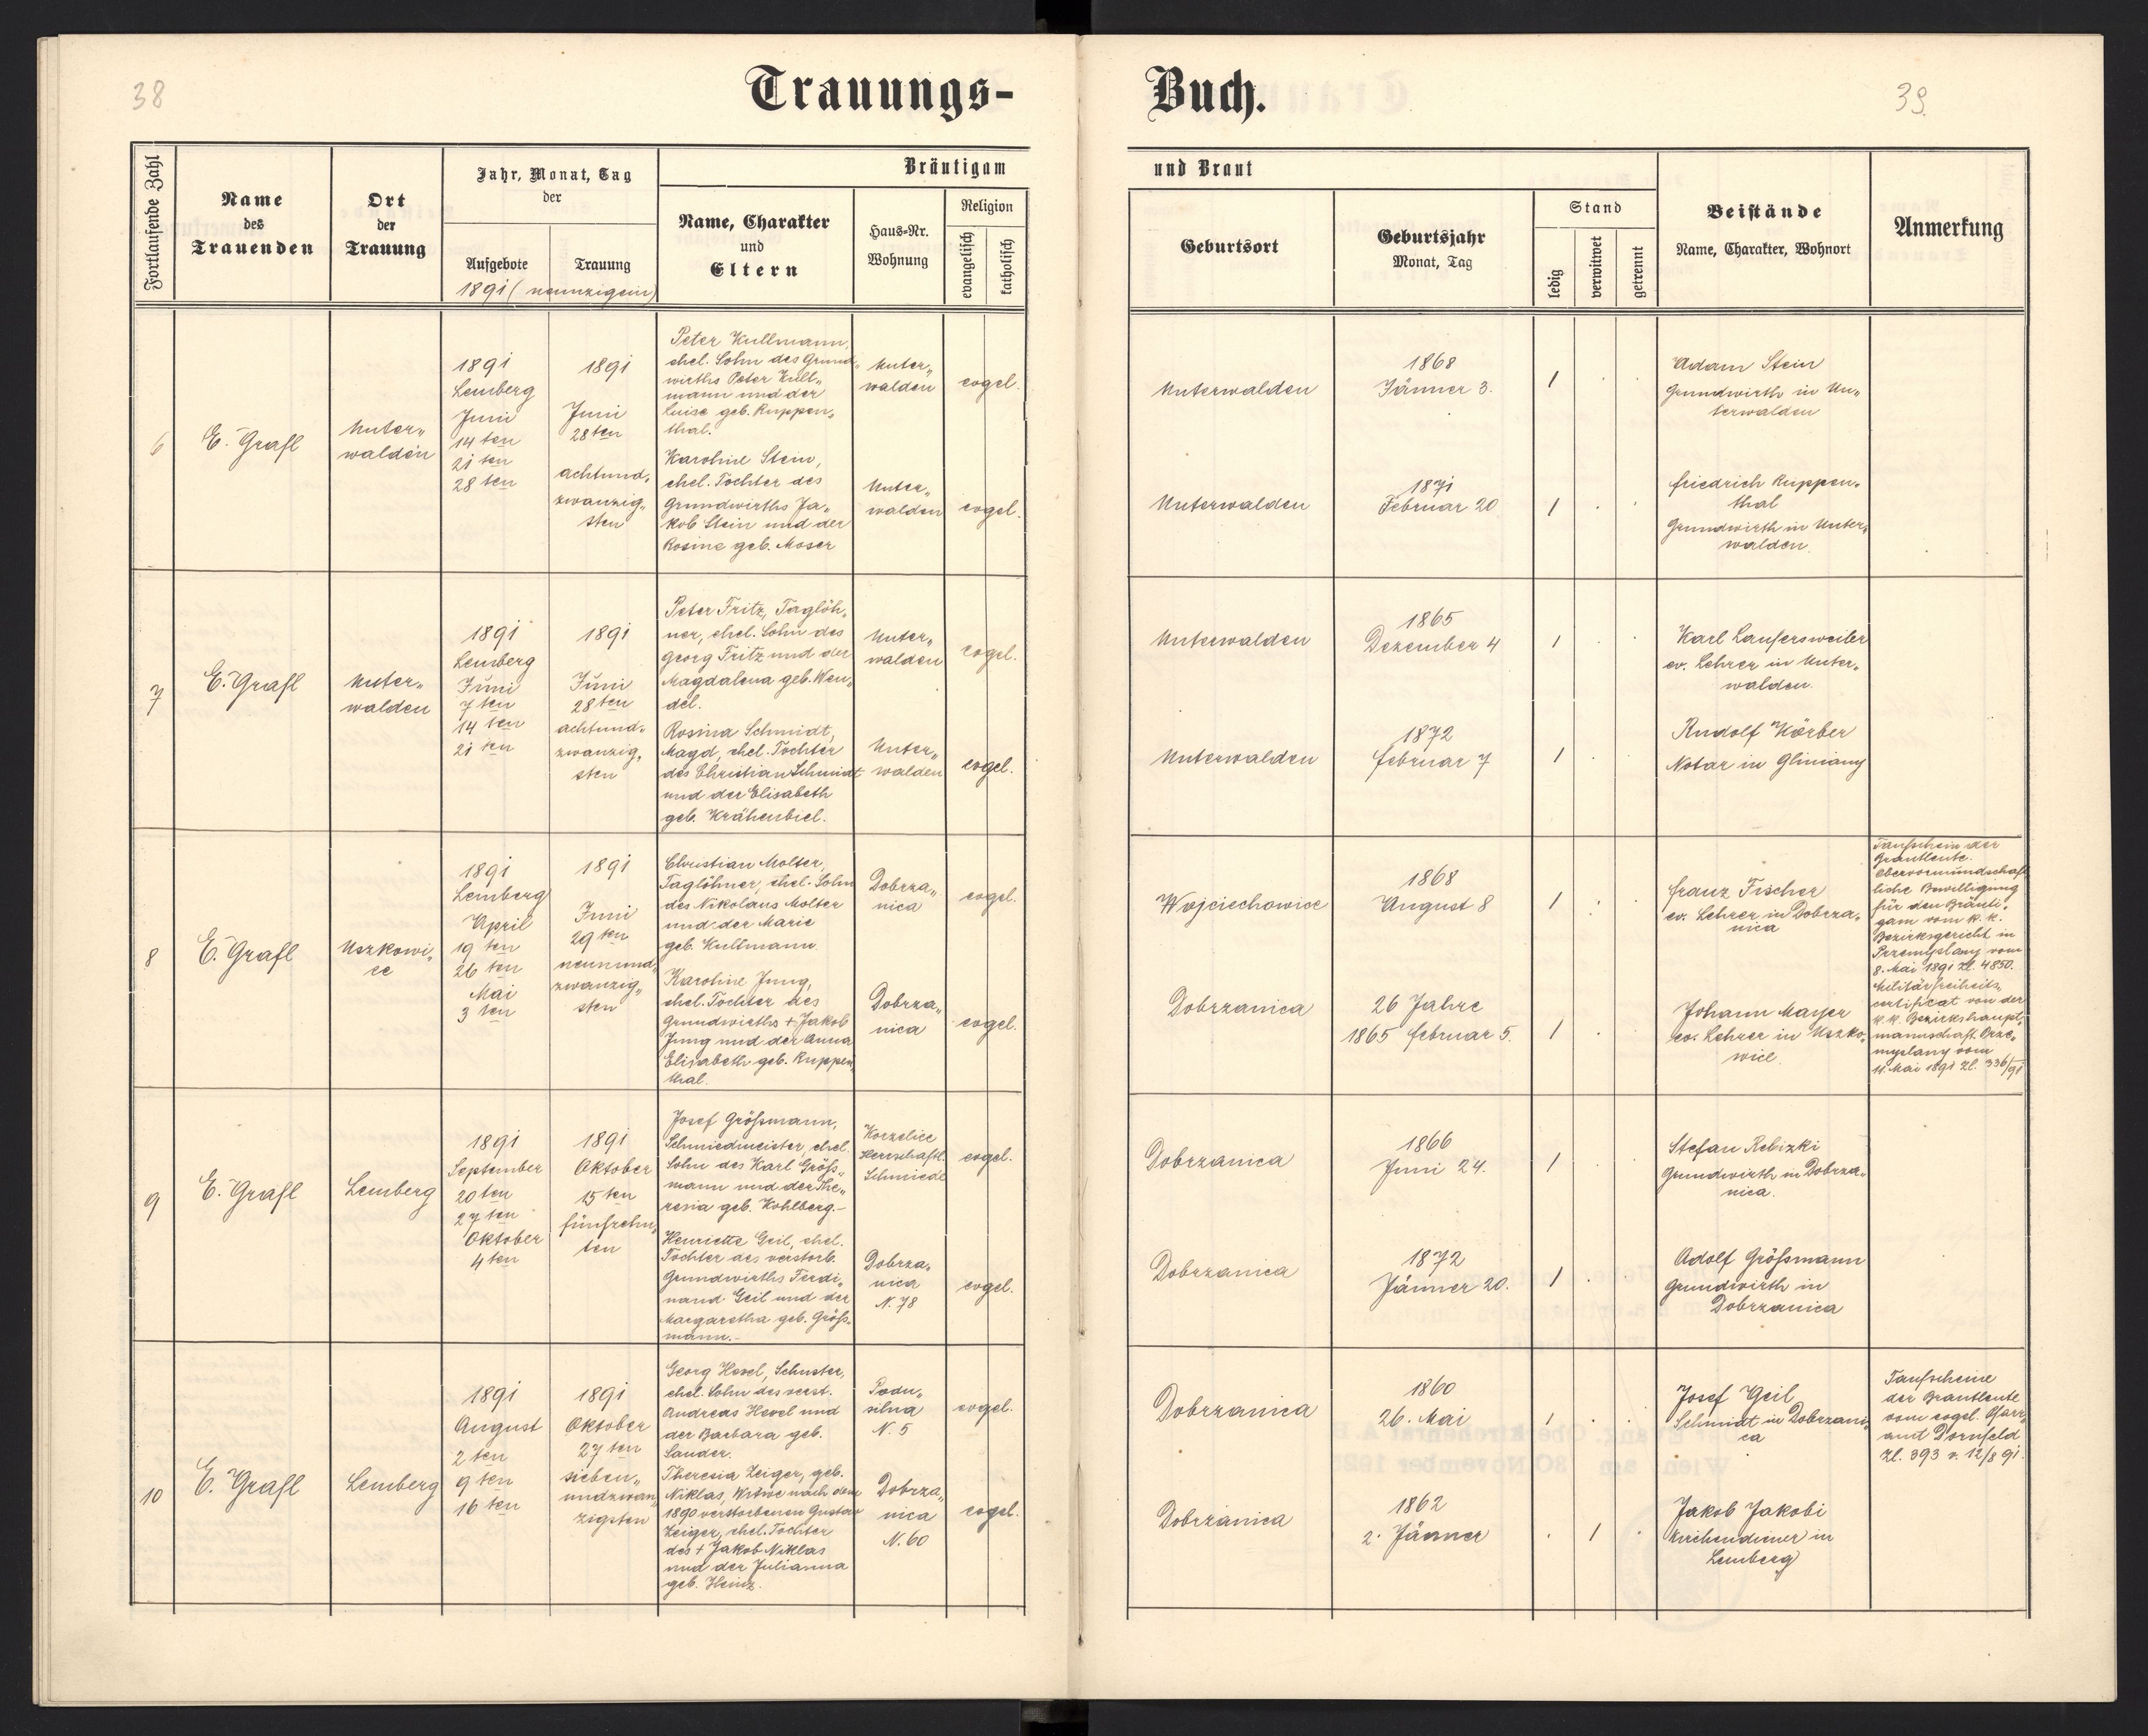 38
Trauungs-
Buch.
39.
Fortlaufende Zahl
Name
des
Trauenden
Ort
der
Trauung
Jahr, Monat, Tag
der
Aufgebote
Trauung
1891 (neunzigein)
Bräutigam
Name, Charakter
und
Eltern
Haus-Nr.
Wohnung
Religion
evangelisch
katholisch
und Braut
Geburtsort
Geburtsjahr
Monat, Tag
Stand
ledig
verwitwet
getrennt
Beistände
Name, Charakter, Wohnort
Anmerkung
6
E. Grafl
Unter„
walden
1891
Lemberg
Juni
14ten
21ten
28ten
1891
Juni
28ten
achtund„
zwanzig„
sten
Peter Kullmann,
ehel. Sohn des Grund„
wirths Peter Kull„
mann und der
Luise geb. Ruppen„
thal.
Unter„
walden
evgel.
Unterwalden
1868
Jänner 3.
1
Adam Stein
Grundwirth in Un„
terwalden
Karoline Stein,
ehel. Tochter des
Grundwirths Ja„
kob Stein und der
Rosine geb. Moser
Unter„
walden
evgel.
Unterwalden
1871
Februar 20
1
Friedrich Ruppen„
thal
Grundwirth in Unter„
walden.
7
E. Grafl
Unter„
walden
1891
Lemberg
Juni
7ten
14ten
21ten
1891
Juni
28ten
achtund„
zwanzig„
sten
Peter Fritz, Taglöh„
ner, ehel. Sohn des
Georg Fritz und der
Magdalena geb. Wen„
del.
Unter„
walden
evgel.
Unterwalden
1865
Dezember 4
1
Karl Laufersweiler
ev. Lehrer in Unter„
walden.
Rosina Schmidt,
Magd, ehel. Tochter
des Christian Schmidt
und der Elisabeth
geb. Krähenbiel.
Unter„
walden
evgel.
Unterwalden
1872
Februar 7
1
Rudolf Körber
Notar in Gliniany
8
E. Grafl
Uszkowi„
ce
1891
Lemberg
April
19ten
26ten
Mai
3ten
1891
Juni
29ten
neunund„
zwanzig„
sten
Christian Molter,
Taglöhner, ehel. Sohn
des Nikolaus Molter
und der Marie
geb. Kullmann.
Dobrza„
nica
evgel.
Wojciechowice
1868
August 8
1
Franz Fischer
ev. Lehrer in Dobrza„
nica
Taufschein der
Brautleute.
Obervormundschaft
liche Bewilligung
für den Bräuti„
gam vom k. k.
Bezirksgericht in
Przemyslany vom
8. Mai 1891 Zl. 4850.
Militärfreiheits„
certificat von der
k. k. Bezirkshaupt„
mannschaft Prze„
myslany vom
11. Mai 1891 Zl. 336/91
Karoline Jung,
ehel. Tochter des
Grundwirths + Jakob
Jung und der Anna
Elisabeth geb. Ruppen„
thal.
Dobrza„
nica
evgel.
Dobrzanica
26 Jahre
1865 Februar 5.
1
Johann Mayer
ev. Lehrer in Uszko„
wice.
9
E. Grafl
Lemberg
1891
September
20ten
27ten
Oktober
4ten
1891
Oktober
15ten
fünfzehn„
ten
Josef Größmann,
Schmiedmeister, ehel.
Sohn des Karl Größ„
mann und der The„
resia geb. Kohlberg.
Korzelice
Herrschaftl.
Schmiede
evgel.
Dobrzanica
1866
Juni 24.
1
Stefan Rebizki
Grundwirth in Dobrza„
nica.
Henriette Geil, ehel.
Tochter des verstorb.
Grundwirths Ferdi„
nand Geil und der
Margaretha geb. Größ„
mann.
Dobrza„
nica
N. 78
evgel.
Dobrzanica
1872
Jänner 20.
1
Adolf Größmann
Grundwirth in
Dobrzanica
10
E. Grafl
Lemberg
1891
August
2ten
9ten
16ten
1891
Oktober
27ten
sieben„
undzwan„
zigsten
Georg Hexel, Schuster,
ehel. Sohn des verst.
Andreas Hexel und
der Barbara geb.
Sauder.
Podu„
silna
N. 5
evgel.
Dobrzanica
1860
26. Mai
1
Josef Geil
Schmidt in Dobrzani„
ca
Taufscheine
der Brautleute
vom evgel. Pfarr„
amt Dornfeld
Zl. 393 v. 12/8 91.
Theresia Zeiger, geb.
Niklas, Witwe nach dem
1890 verstorbenen Gustav
Zeiger, ehel. Tochter
des + Jakob Niklas
und der Julianna
geb. Heinz.
Dobrza„
nica
N. 60
evgel.
Dobrzanica
1862
2. Jänner
1
Jakob Jakobi
Kirchendiener in
Lemberg